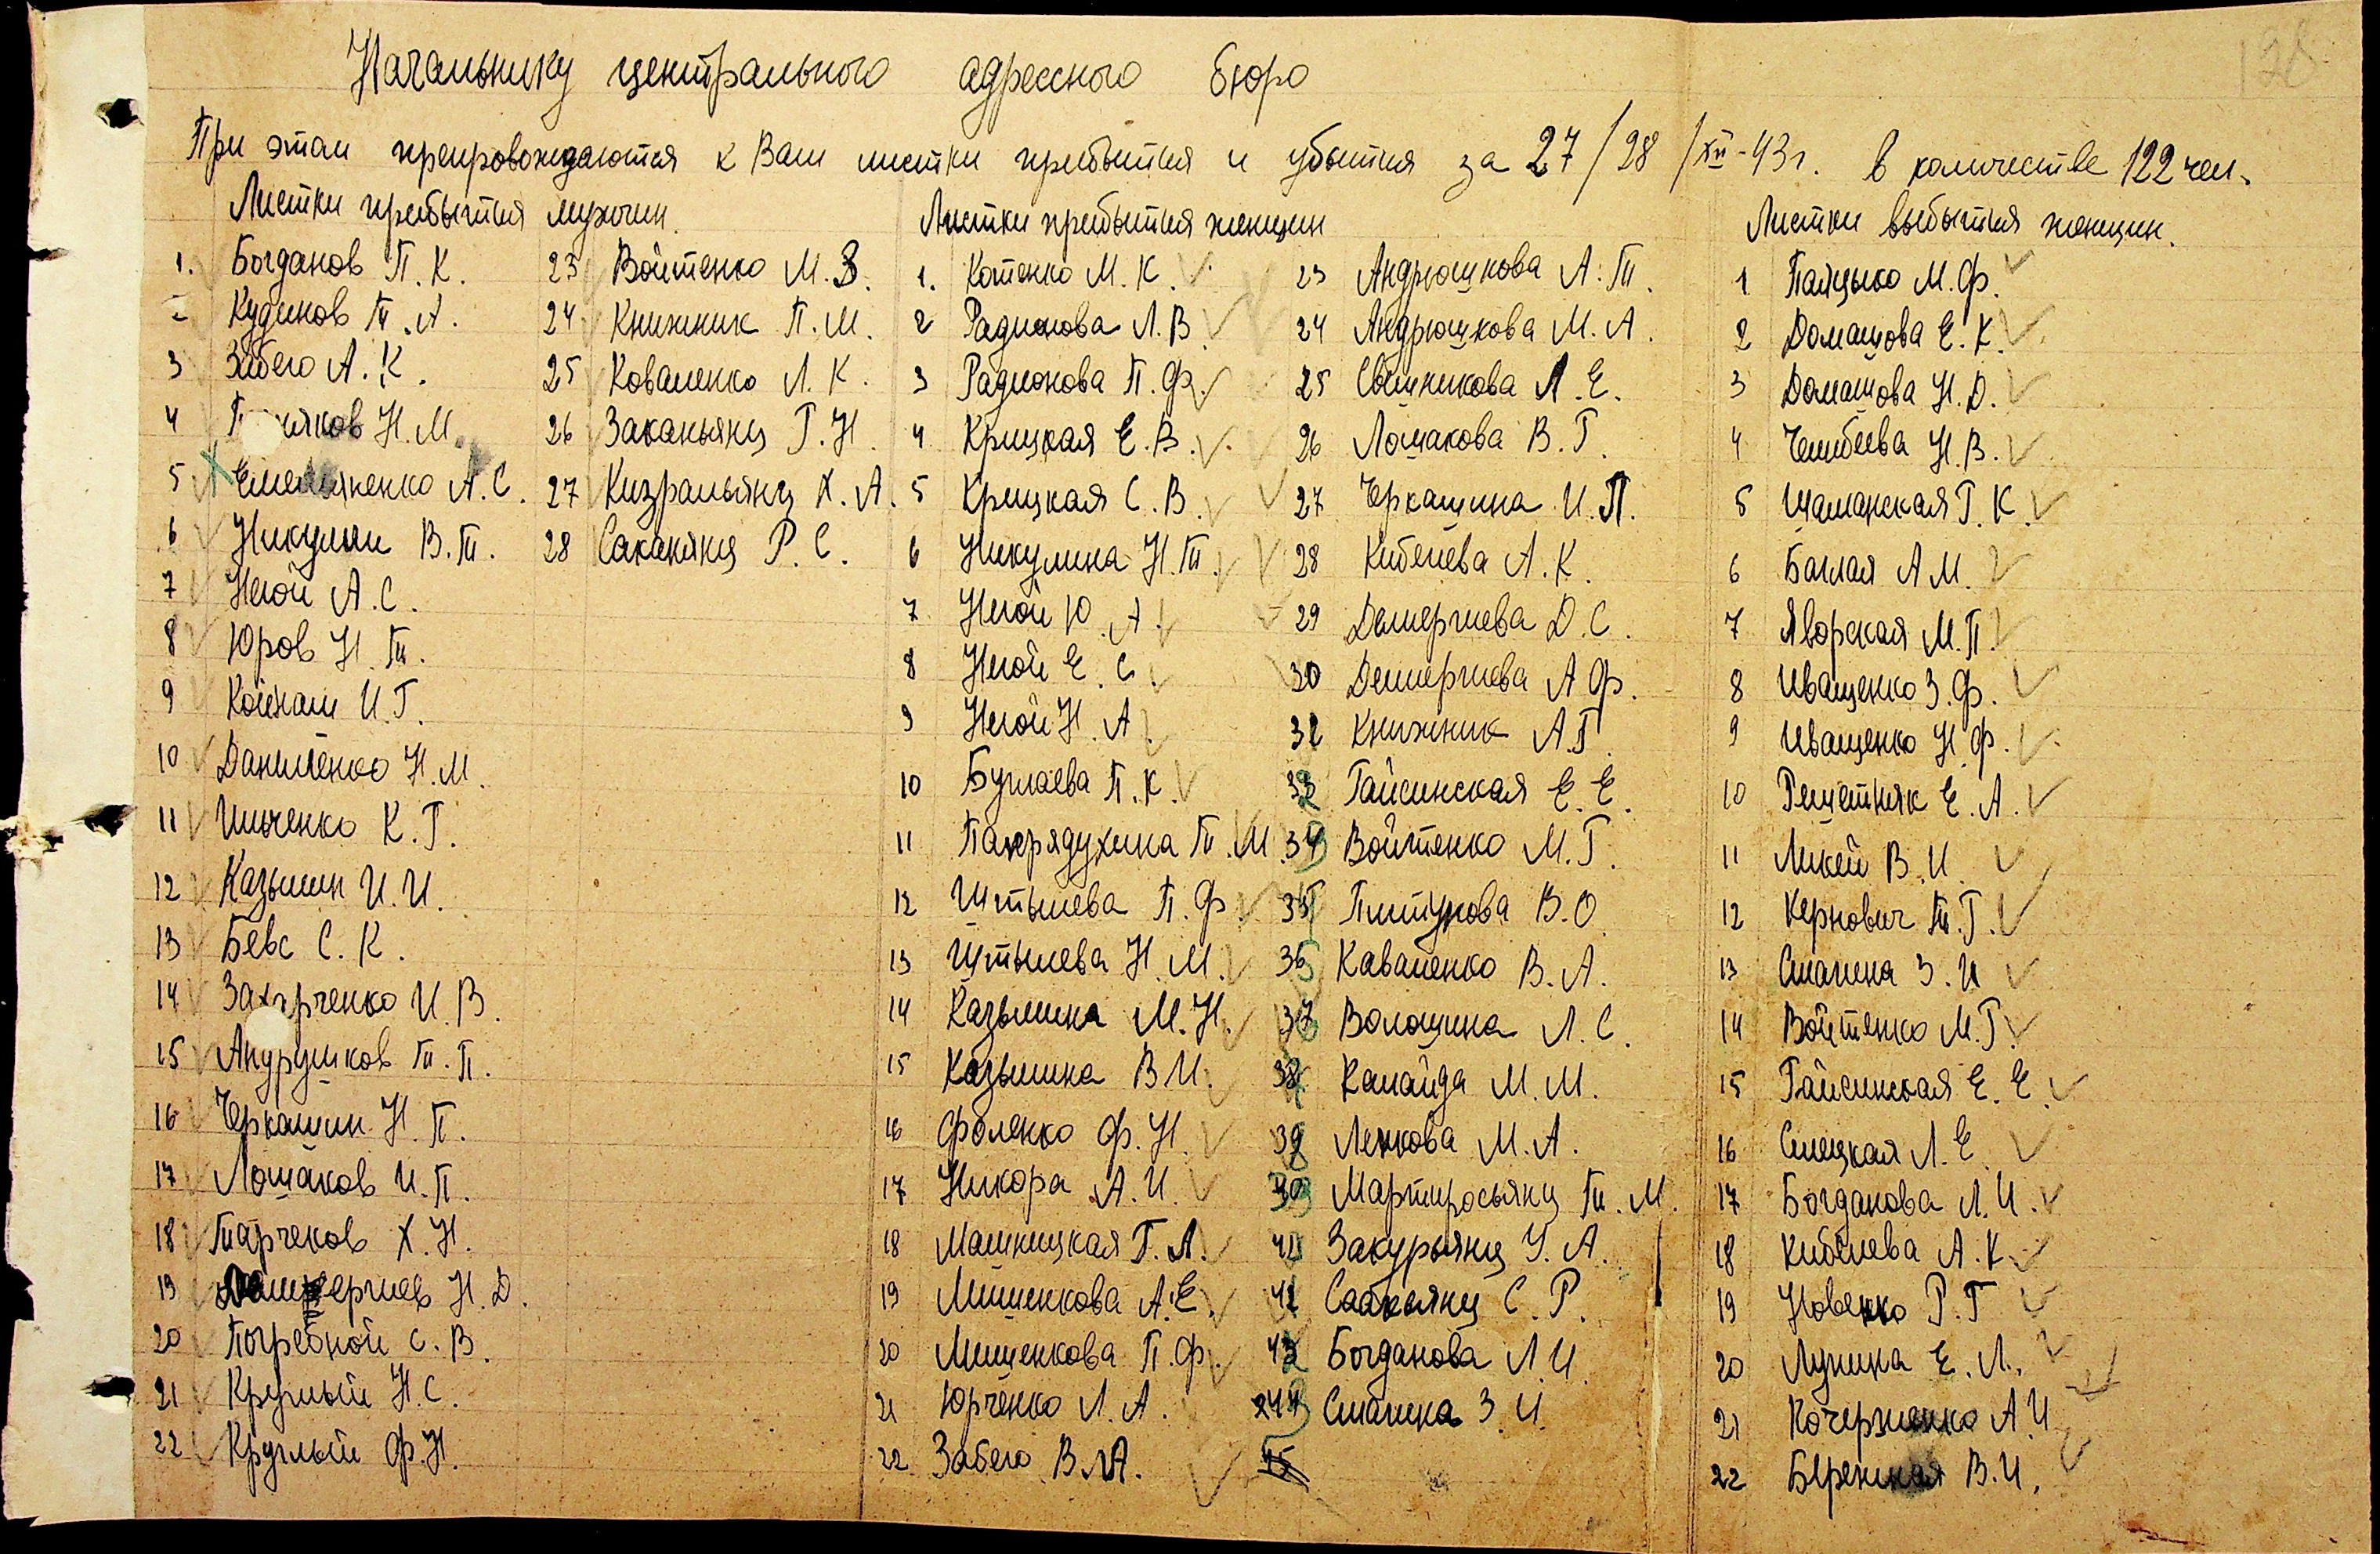 128
Начальнику центрального адресного бюро
При этом препровождаются к Вам листки прибытия и убытия за 27/28/XII-43 г. в количестве 122 чел.
Листки прибытия мужчин.
1. Богданов П. К.
2 Кудинов Т. А.
3 Забего А. К.
4 Н. М.
5 Емельяненко А. С.
6 Никулин В. Т.
7 Негой А. С.
8 Юров Н. Т.
9 Койнаш И. Г.
10 Даниленко Н. М.
11 Ильченко К. Г.
12 Казьмин И. И.
13 Бевс С. К.
14 Захарченко И. В.
15 Андрушков Т. П.
16 Черкашин Н. П.
17 Лошаков И. П.
18 Тарчоков Х. Н.
19 Демерчиев Н. Д.
20 Погребной С. В.
21 Круглый Н. С.
22 Круглый Ф. Н.
23 Войтенко М. З.
24 Книжник П. М.
25 Коваленко Л. К.
26 Заканьянц Г. Н.
27 Кизральянц Х. А.
28 Саканянц Р. С.
Листки прибытия женщин
1. Котенко М. К.
2 Радионова Л. В.
3 Радионова П. Ф.
4 Крицкая Е. В.
5 Крицкая С. В.
6 Никулина Н. Т.
7 Негой Ю. А.
8 Негой Е. С.
9 Негой Н. А.
10 Буглаева П. К.
11 Т. М.
12 Штылева П. Ф.
13 Штылева Н. М.
14 Казьмина М. Н.
15 Казьмина В. И.
16 Фоленко Ф. Н.
17 Никора А. И.
18 Машницкая Г. Л.
19 Мишенкова А. Е.
20 Мишенкова П. Ф.
21 Юрченко Л. А.
22 Забего В. А.
23 Андрюшкова А. Т.
24 Андрюшкова М. А.
25 Свитникова Л. Е.
26 Лошакова В. Г.
27 Черкашина И. П.
28 Кибелева А. К.
29 Демерчиева Д. С.
30 Демерчиева А. Ф.
Книжник А. Г.
Гайсинская Е. Е.
Войтенко М. Г.
Питунова В. О.
Каваленко В. А.
Волошина Л. С.
Канайда М. М.
Ленкова М. А.
Мартиросьянц Т. М.
Закурьянц У. А.
Саакьянц С. Р.
Богданова Л. И.
Смагина З. И.
Листки выбытия женщин.
1 Палцыко М. Ф.
2 Домашова Е. К.
3 Домашова Н. Д.
4 Челибеева Н. В.
5 Шаманская Г. К.
6 Баглая А. М.
7 Яворская М. П.
8 Иващенко З. Ф.
9 Иващенко Н. Ф.
10 Решетняк Е. А.
11 Ликей В. И.
12 Кернович Т. Г.
13 Смагина З. И.
14 Войтенко М. Г.
15 Гайсинская Е. Е.
16 Слецкая Л. Е.
17 Богданова Л. И.
18 Кибелева А. К.
19 Новенко Р. Г.
20 Лунина Е. Л.
21 Кочерженко А. И.
22 Бережная В. И.